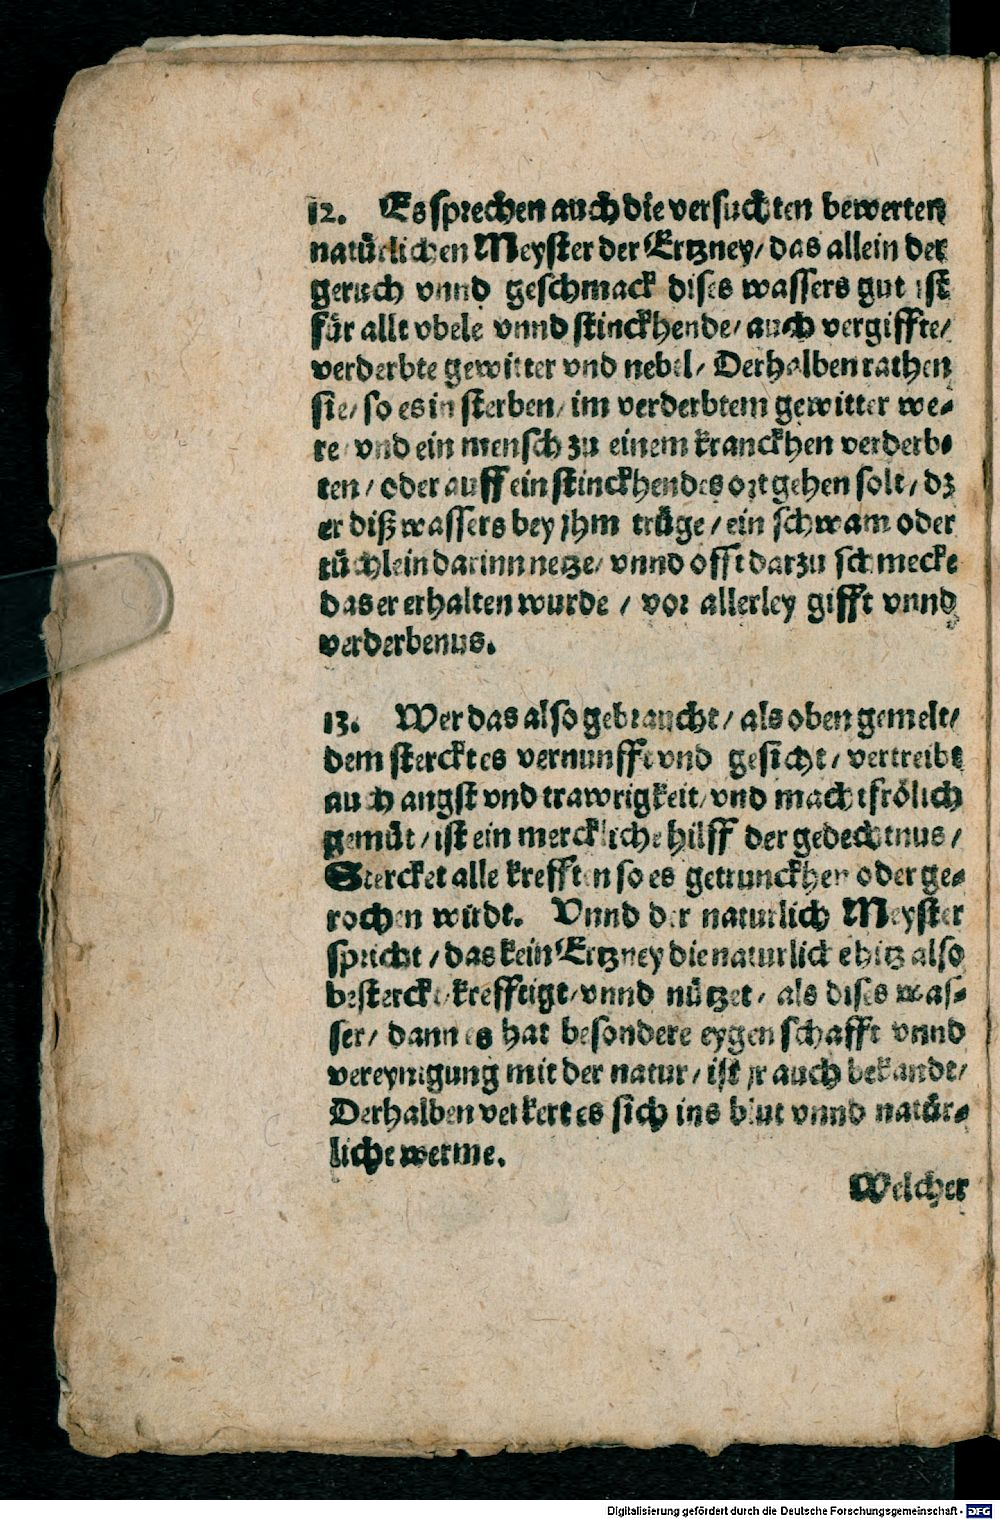 12. Es sprechen auch die versuchten bewerten
natürlichen Meyster der Ertzney / das allein der
geruch vnnd geschmack dises wassers gut ist
für alle vbele vnnd stinckhende / auch vergiffte /
verderbte gewitter vnd nebel / Derhalben rathen
sie / so es in sterben / im verderbtem gewitter we⸗
re / vnd ein mensch zu einem kranckhen verderb⸗
ten / oder auff ein stinckhendes ort gehen solt / dz
er diß wassers bey jhm trüge / ein schwam oder
tüchlein darinn netze / vnnd offt darzu schmecke
das er erhalten wurde / vor allerley gifft vnnd
verderbenus.
13. Wer das also gebraucht / als oben gemelt /
dem sterckt es vernunfft vnd gesicht / vertreibt
auch angst vnd trawrigkeit / vnd macht frölich
gemüt / ist ein merckliche hilff der gedechtnus /
Stercket alle krefften so es getrunckhen oder ge⸗
rochen wirdt. Vnnd der naturlich Meyster
spricht / das kein Ertzney die naturliche hitz also
besterckt / krefftigt / vnnd nützet / als dises was⸗
ser / dann es hat besondere eygenschafft vnnd
vereynigung mit der natur / ist jr auch bekandt /
Derhalben verkert es sich ins blut vnnd natür⸗
liche werme.
Welcher
Digitalisierung gefördert durch die Deutsche Forschungsgemeinschaft - DFG